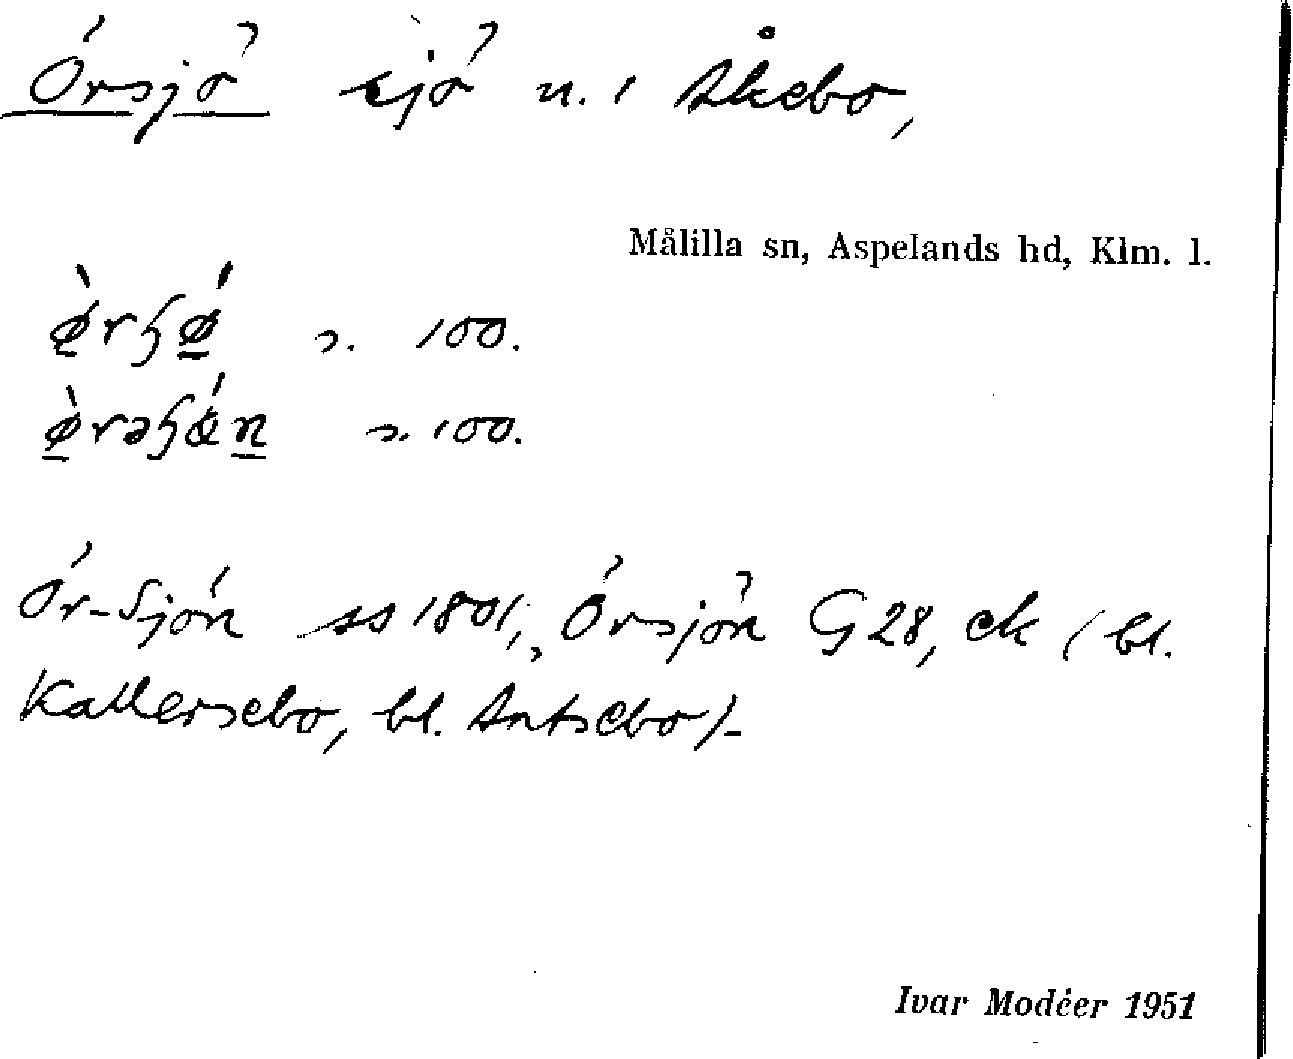 Örsjö sjö n. i Åkebo,
Målilla sn, Aspelands hd, Klm. l.
s. 100.
s. 100.
Ör-Sjön ss 1801, Örsjön G 28, ek (bl.
Kallersebo, bl. Antsebo).
Ivar Modéer 1951